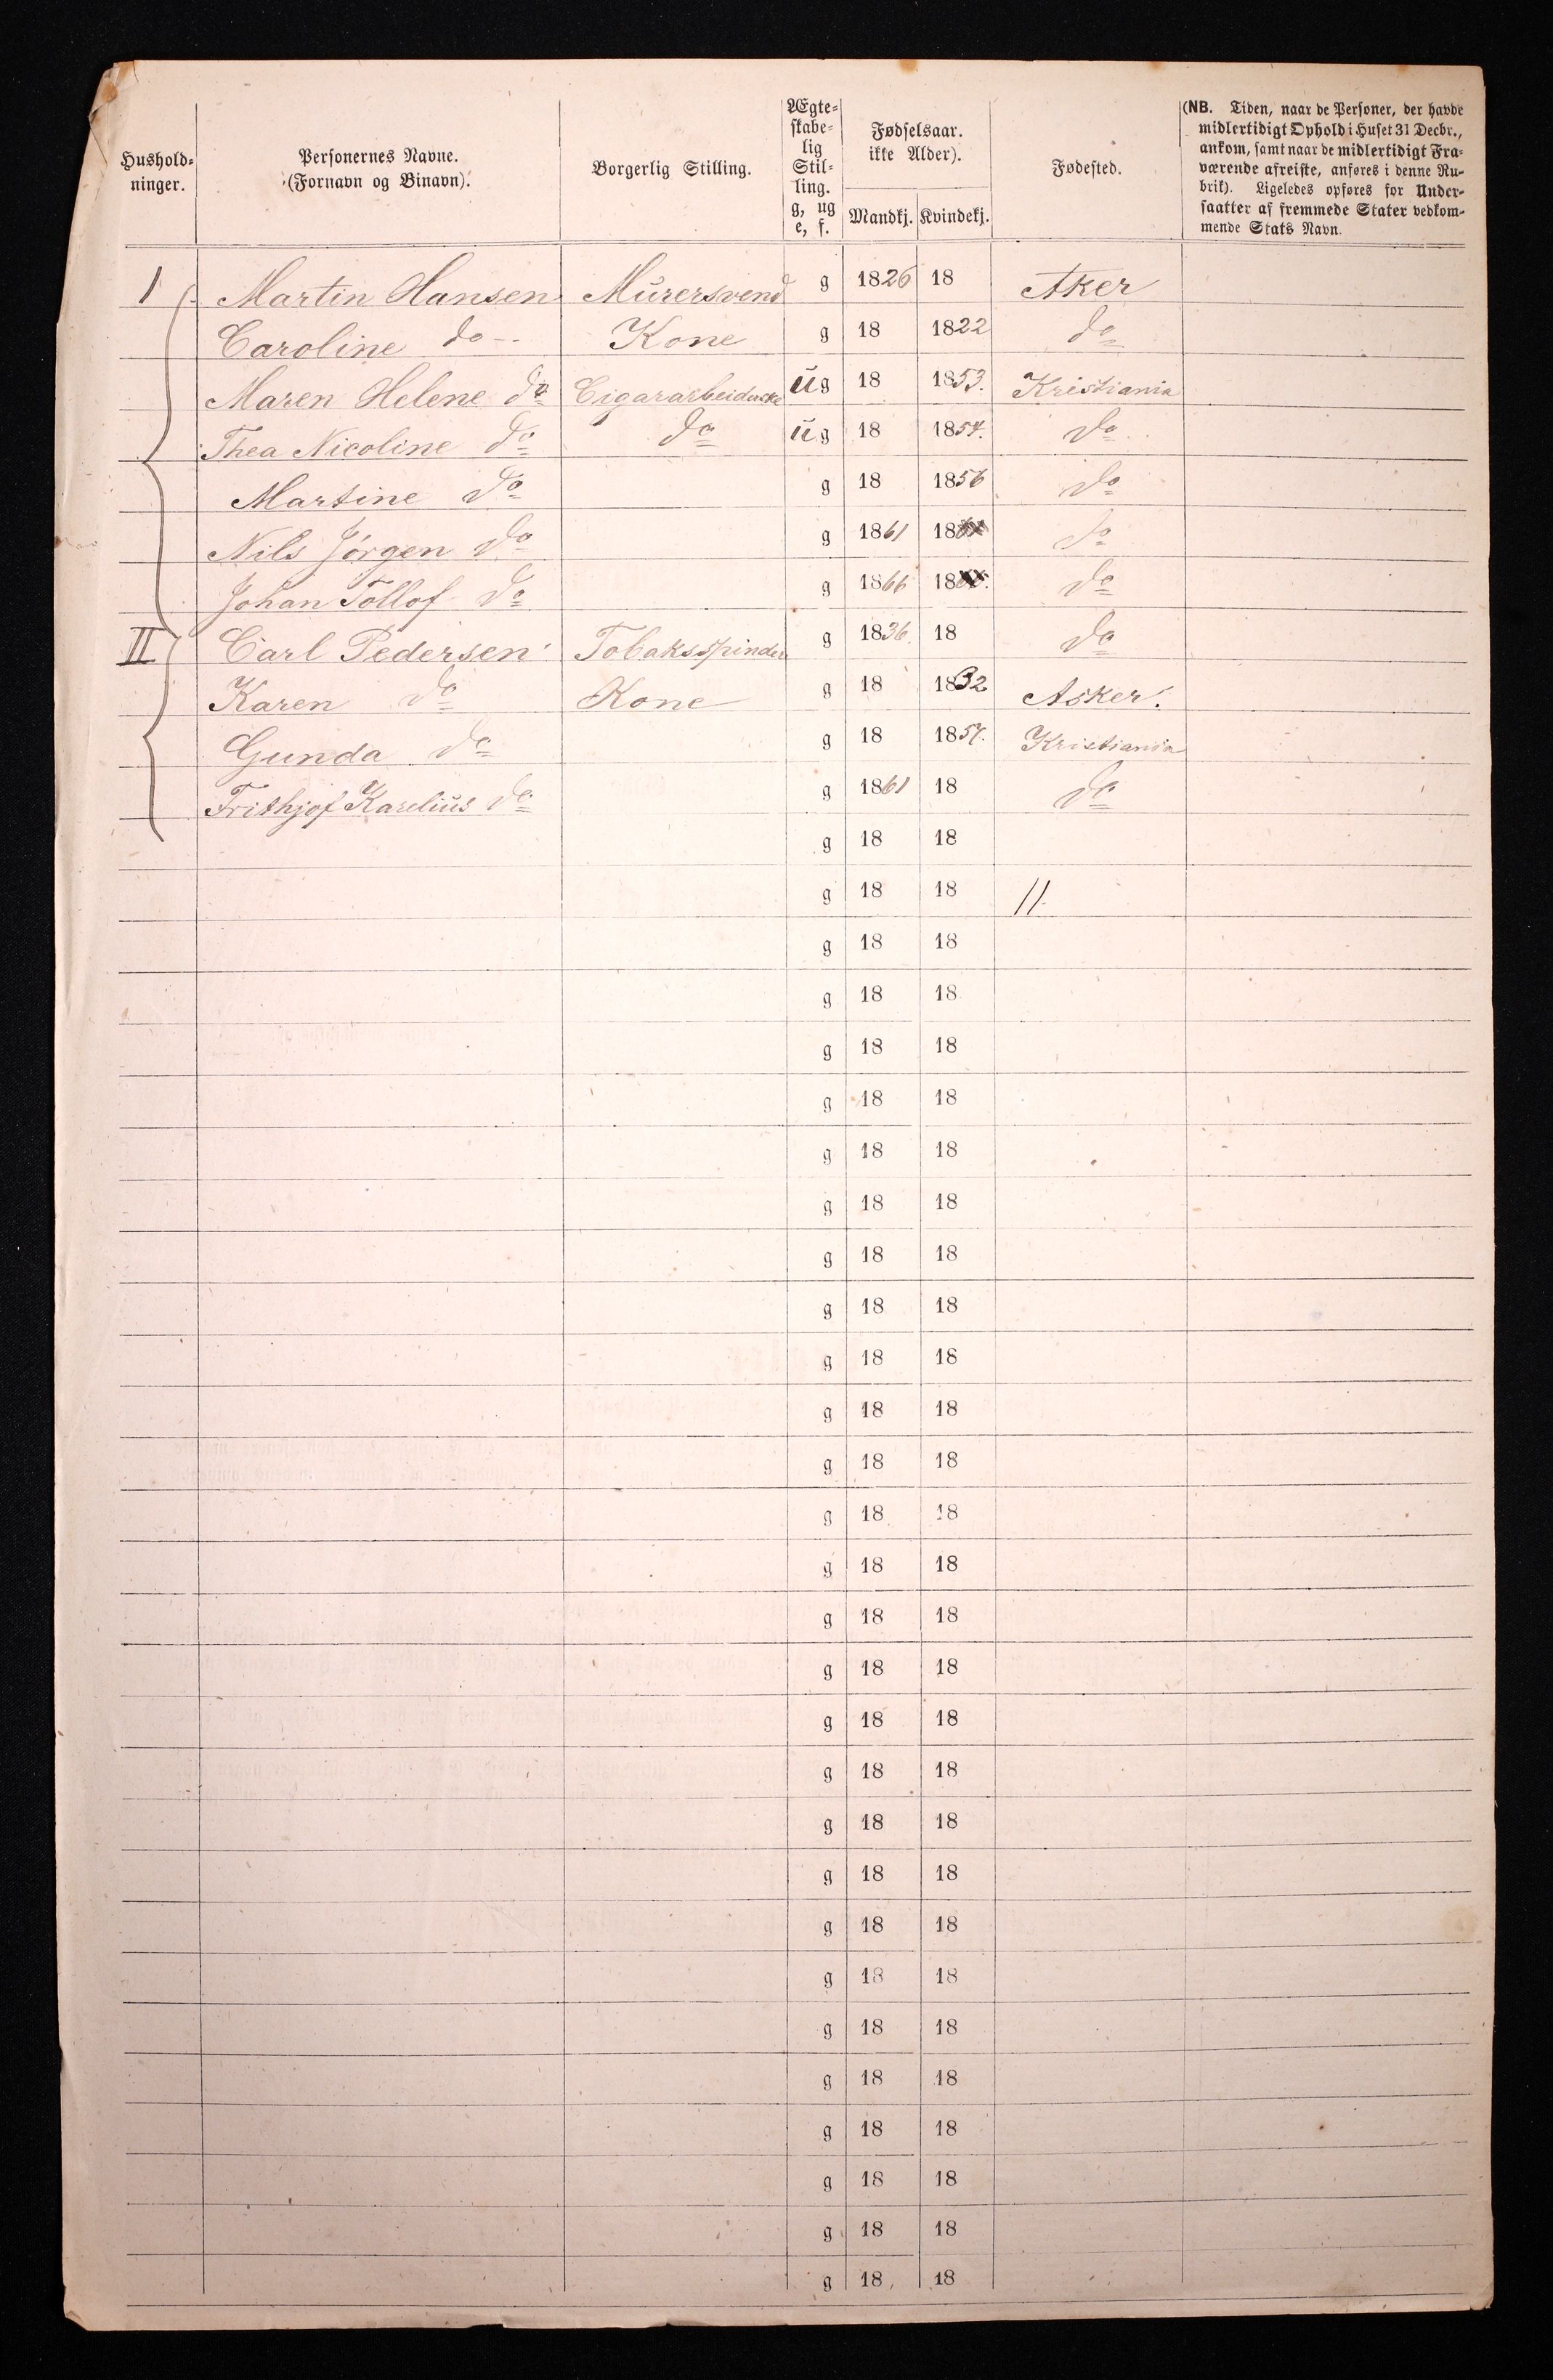 Hushold-
ninger.
Personernes Navne.
(Fornavn og Binavn).
Borgerlig Stilling.
Ægte-
skabe-
lig
Stil-
ling.
g, ug
e, f.
Fødselsaar.
ikke Alder).
Mandkj. Kvindekj.
Fødested.
(NB. Tiden, naar de Personer, der havde
midlertidigt Ophold i Huset 31 Decbr.,
ankom, samt naar de midlertidigt Fra-
værende afreiste, anføres i denne Ru-
brik). Ligeledes opføres for Under-
saatter af fremmede Stater vedkom-
mende Stats Navn.
I Martin Hansen Murersvend g 1826 18 Aker
Caroline do Kone g 18 1822 do
Maren Helene do Cigararbeiderske ug 18 1853. Kristiania
Thea Nicoline do do ug 18 1854. do
Martine do g 18 1856 do
Nils Jørgen do g 1861 18 do
Johan Tollof do g 1866 18 do
II Carl Pedersen Tobaksspinder g 1836 18 do
Karen do Kone g 18 1832 Asker.
Gunda do g 18 1857. Kristiania
Frithjof Karelius do g 1861 18 do
g 18 18
g 18 18 11
g 18 18
g 18 18
g 18 18
g 18 18
g 18 18
g 18 18
g 18 18
g 18 18
g 18 18
g 18 18
g 18 18
g 18 18
g 18 18
g 18 18
g 18 18
g 18 18
g 18 18
g 18 18
g 18 18
g 18 18
g 18 18
g 18 18
g 18 18
g 18 18
g 18 18
g 18 18
g 18 18